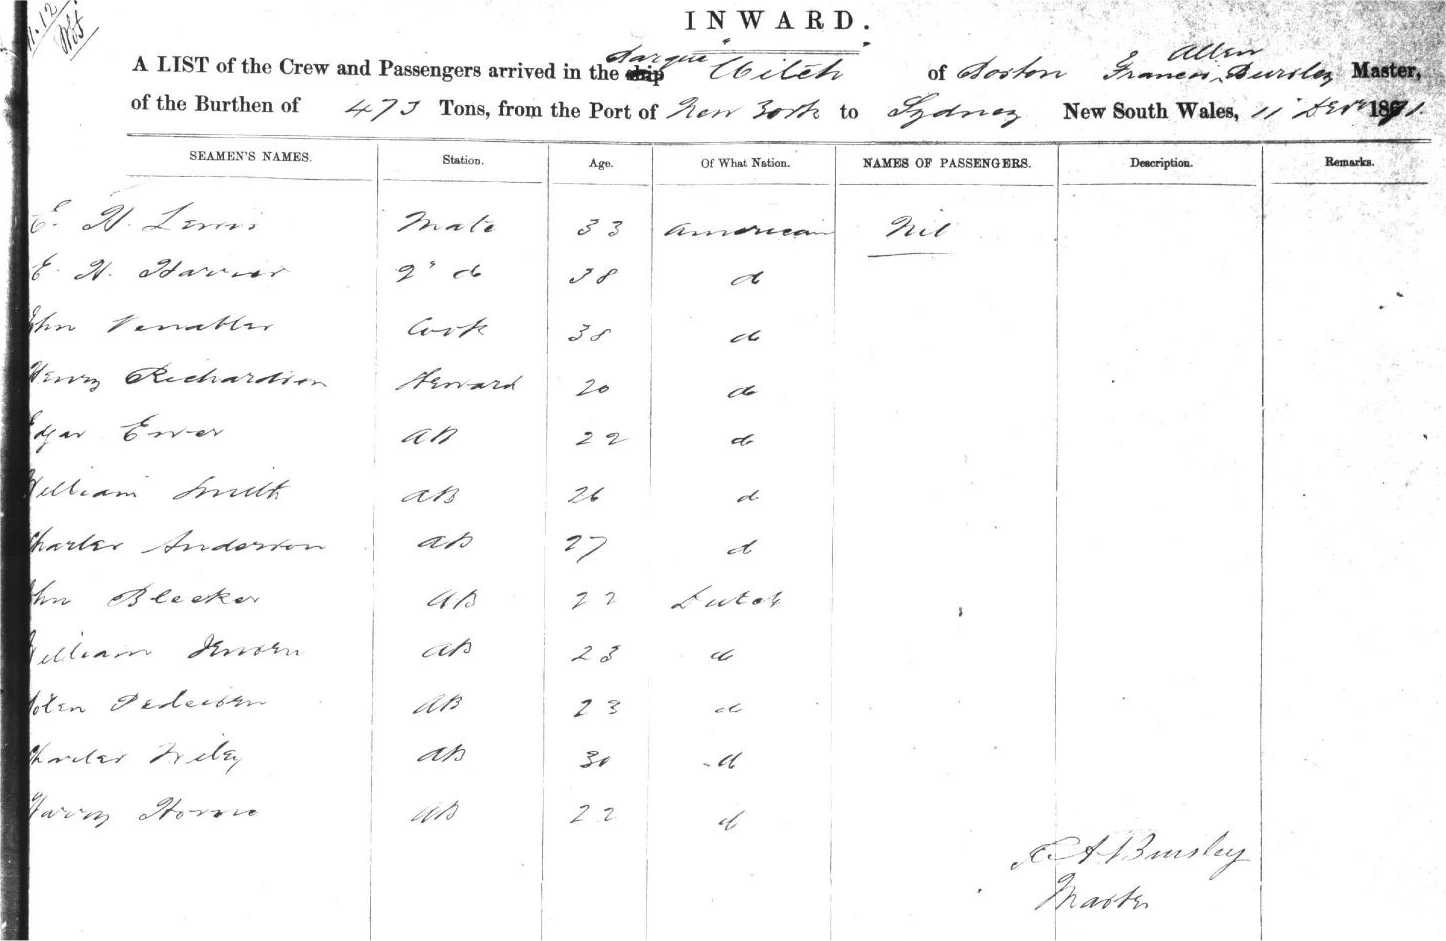 INWARD.
A LIST of the Crew and Passengers arrived in the ship Barque of Boston Francis Allen Bursley Master,
of the Burthen of 473 Tons, from the Port of New York to Sydney New South Wales, 11 Decr 1871.
SEAMEN'S NAMES. Station. Age. Of What Nation. NAMES OF PASSENGERS. Description. Remarks.
E. H. Lewis Mate 33 American Nil
E. H. 2" do 38 do
John Venables Cook 38 do
Henry Richardson Steward 20 do
Edgar Ewer AB 22 do
William Smith AB 26 do
Charles Anderson AB 27 do
John Bleeker AB 22 Dutch
William Jensen AB 23 do
Pedersen AB 23 do
Charles Wiley AB 30 do
Harry Horne AB 22 do
F. A. Bursley
Master